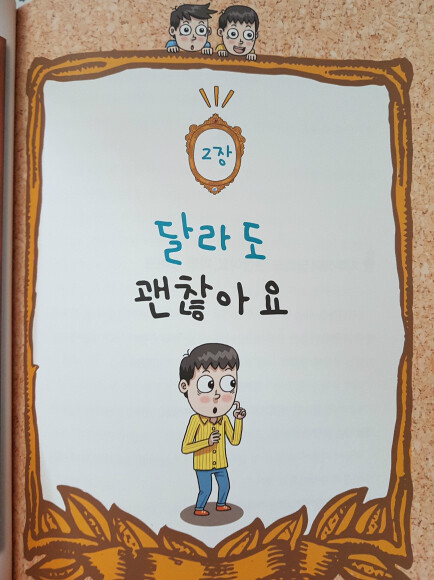 2장
달라도
괜찮아요